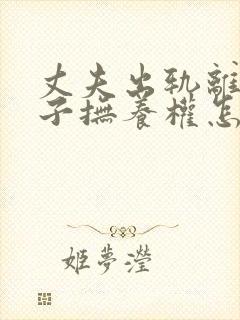 丈夫出轨離
子撫養權怎
姬夢瀅